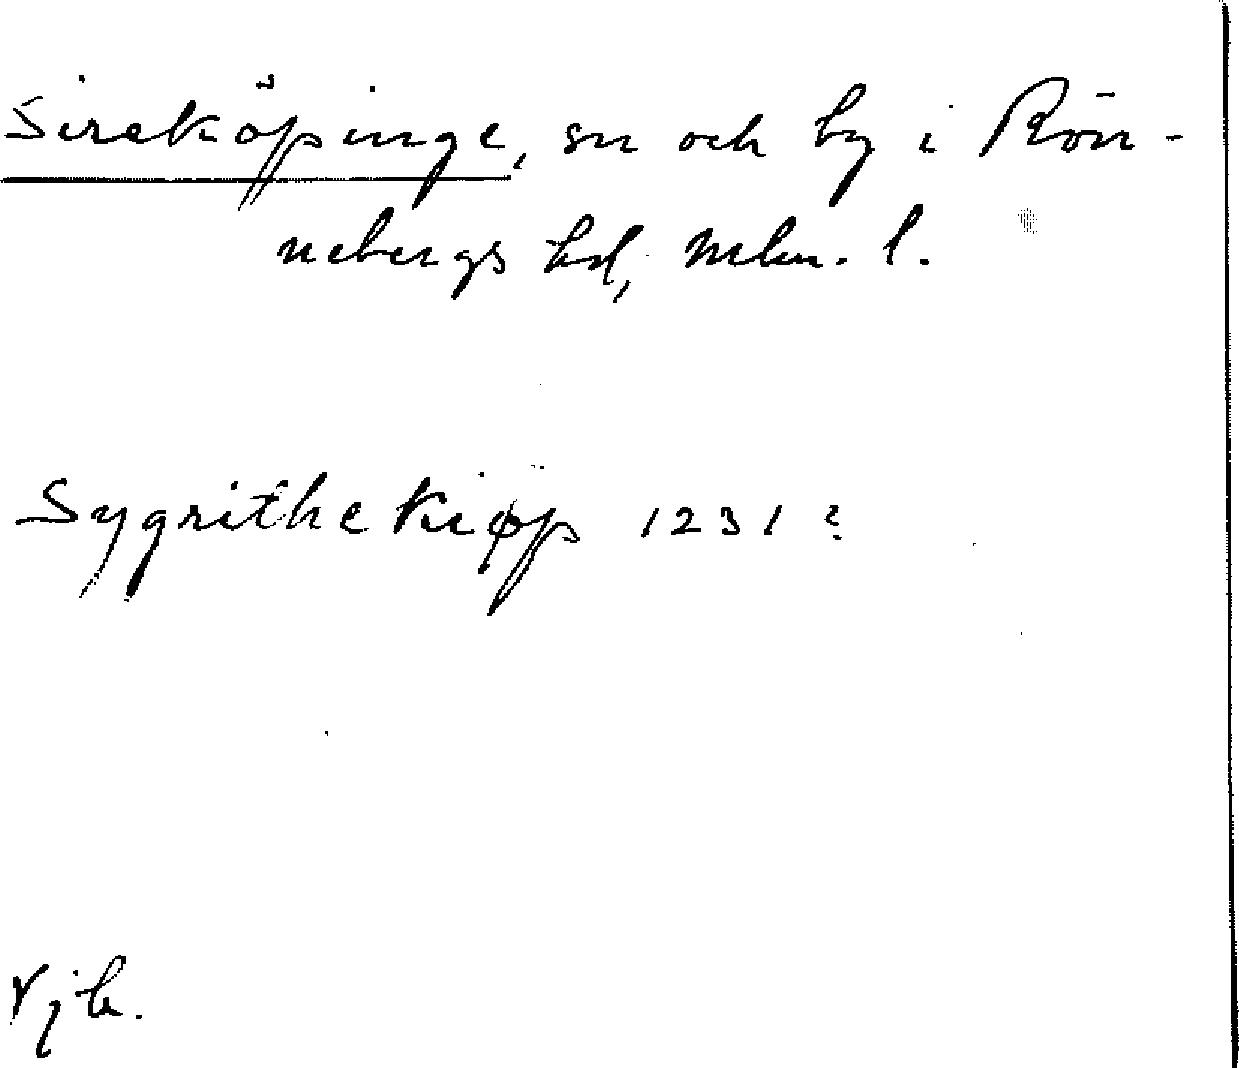 Sireköpinge, sn och by i Rön-
nebergs hd, Mlm. l.
Sygrithe Kiøp 1231?
Vjb.